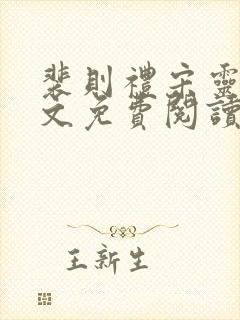 裴則禮宋靈
文免費閱讀
王新生